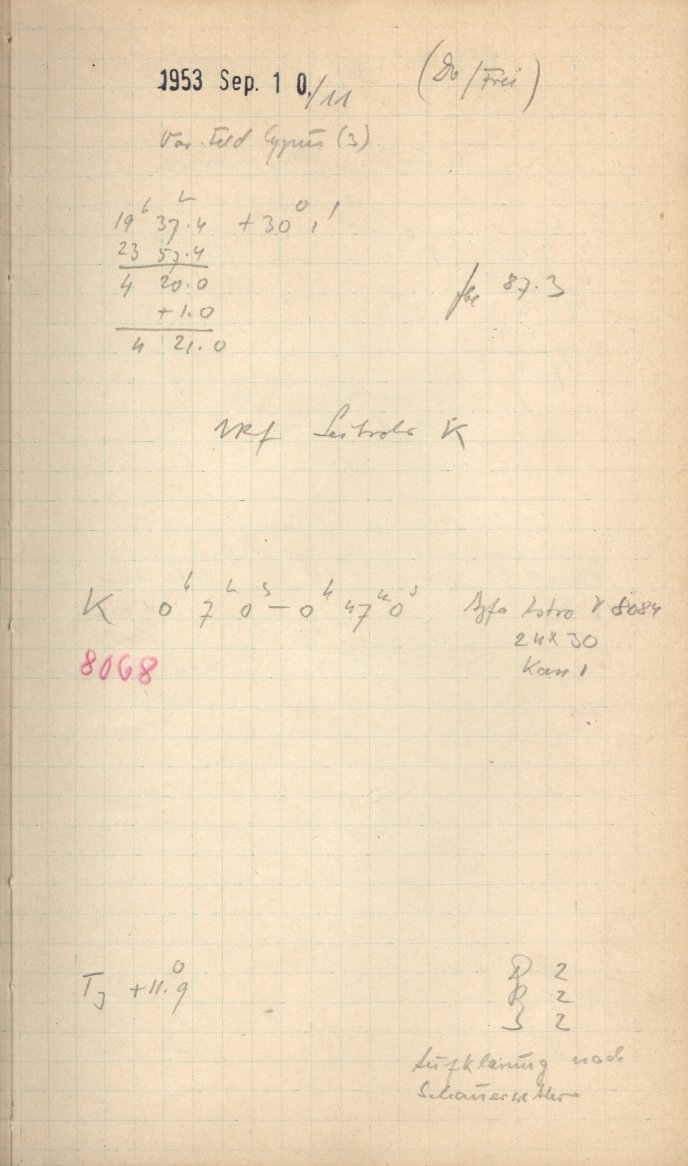 1953 Sep. 10./11 (Do/Frei)
Var. Feld Cygnus (3)
19ʰ 37.4 +30° 1'
23 57.4
4 20.0
+1.0
4 21.0
87.3
K
K 0ʰ 7ᵐ 0ˢ – 0ʰ 47ᵐ 0ˢ Agfa Astro 8084
24x30
8068
T +11.9
D 2
R 2
S 2
Aufklärung nach
Schauerwetter